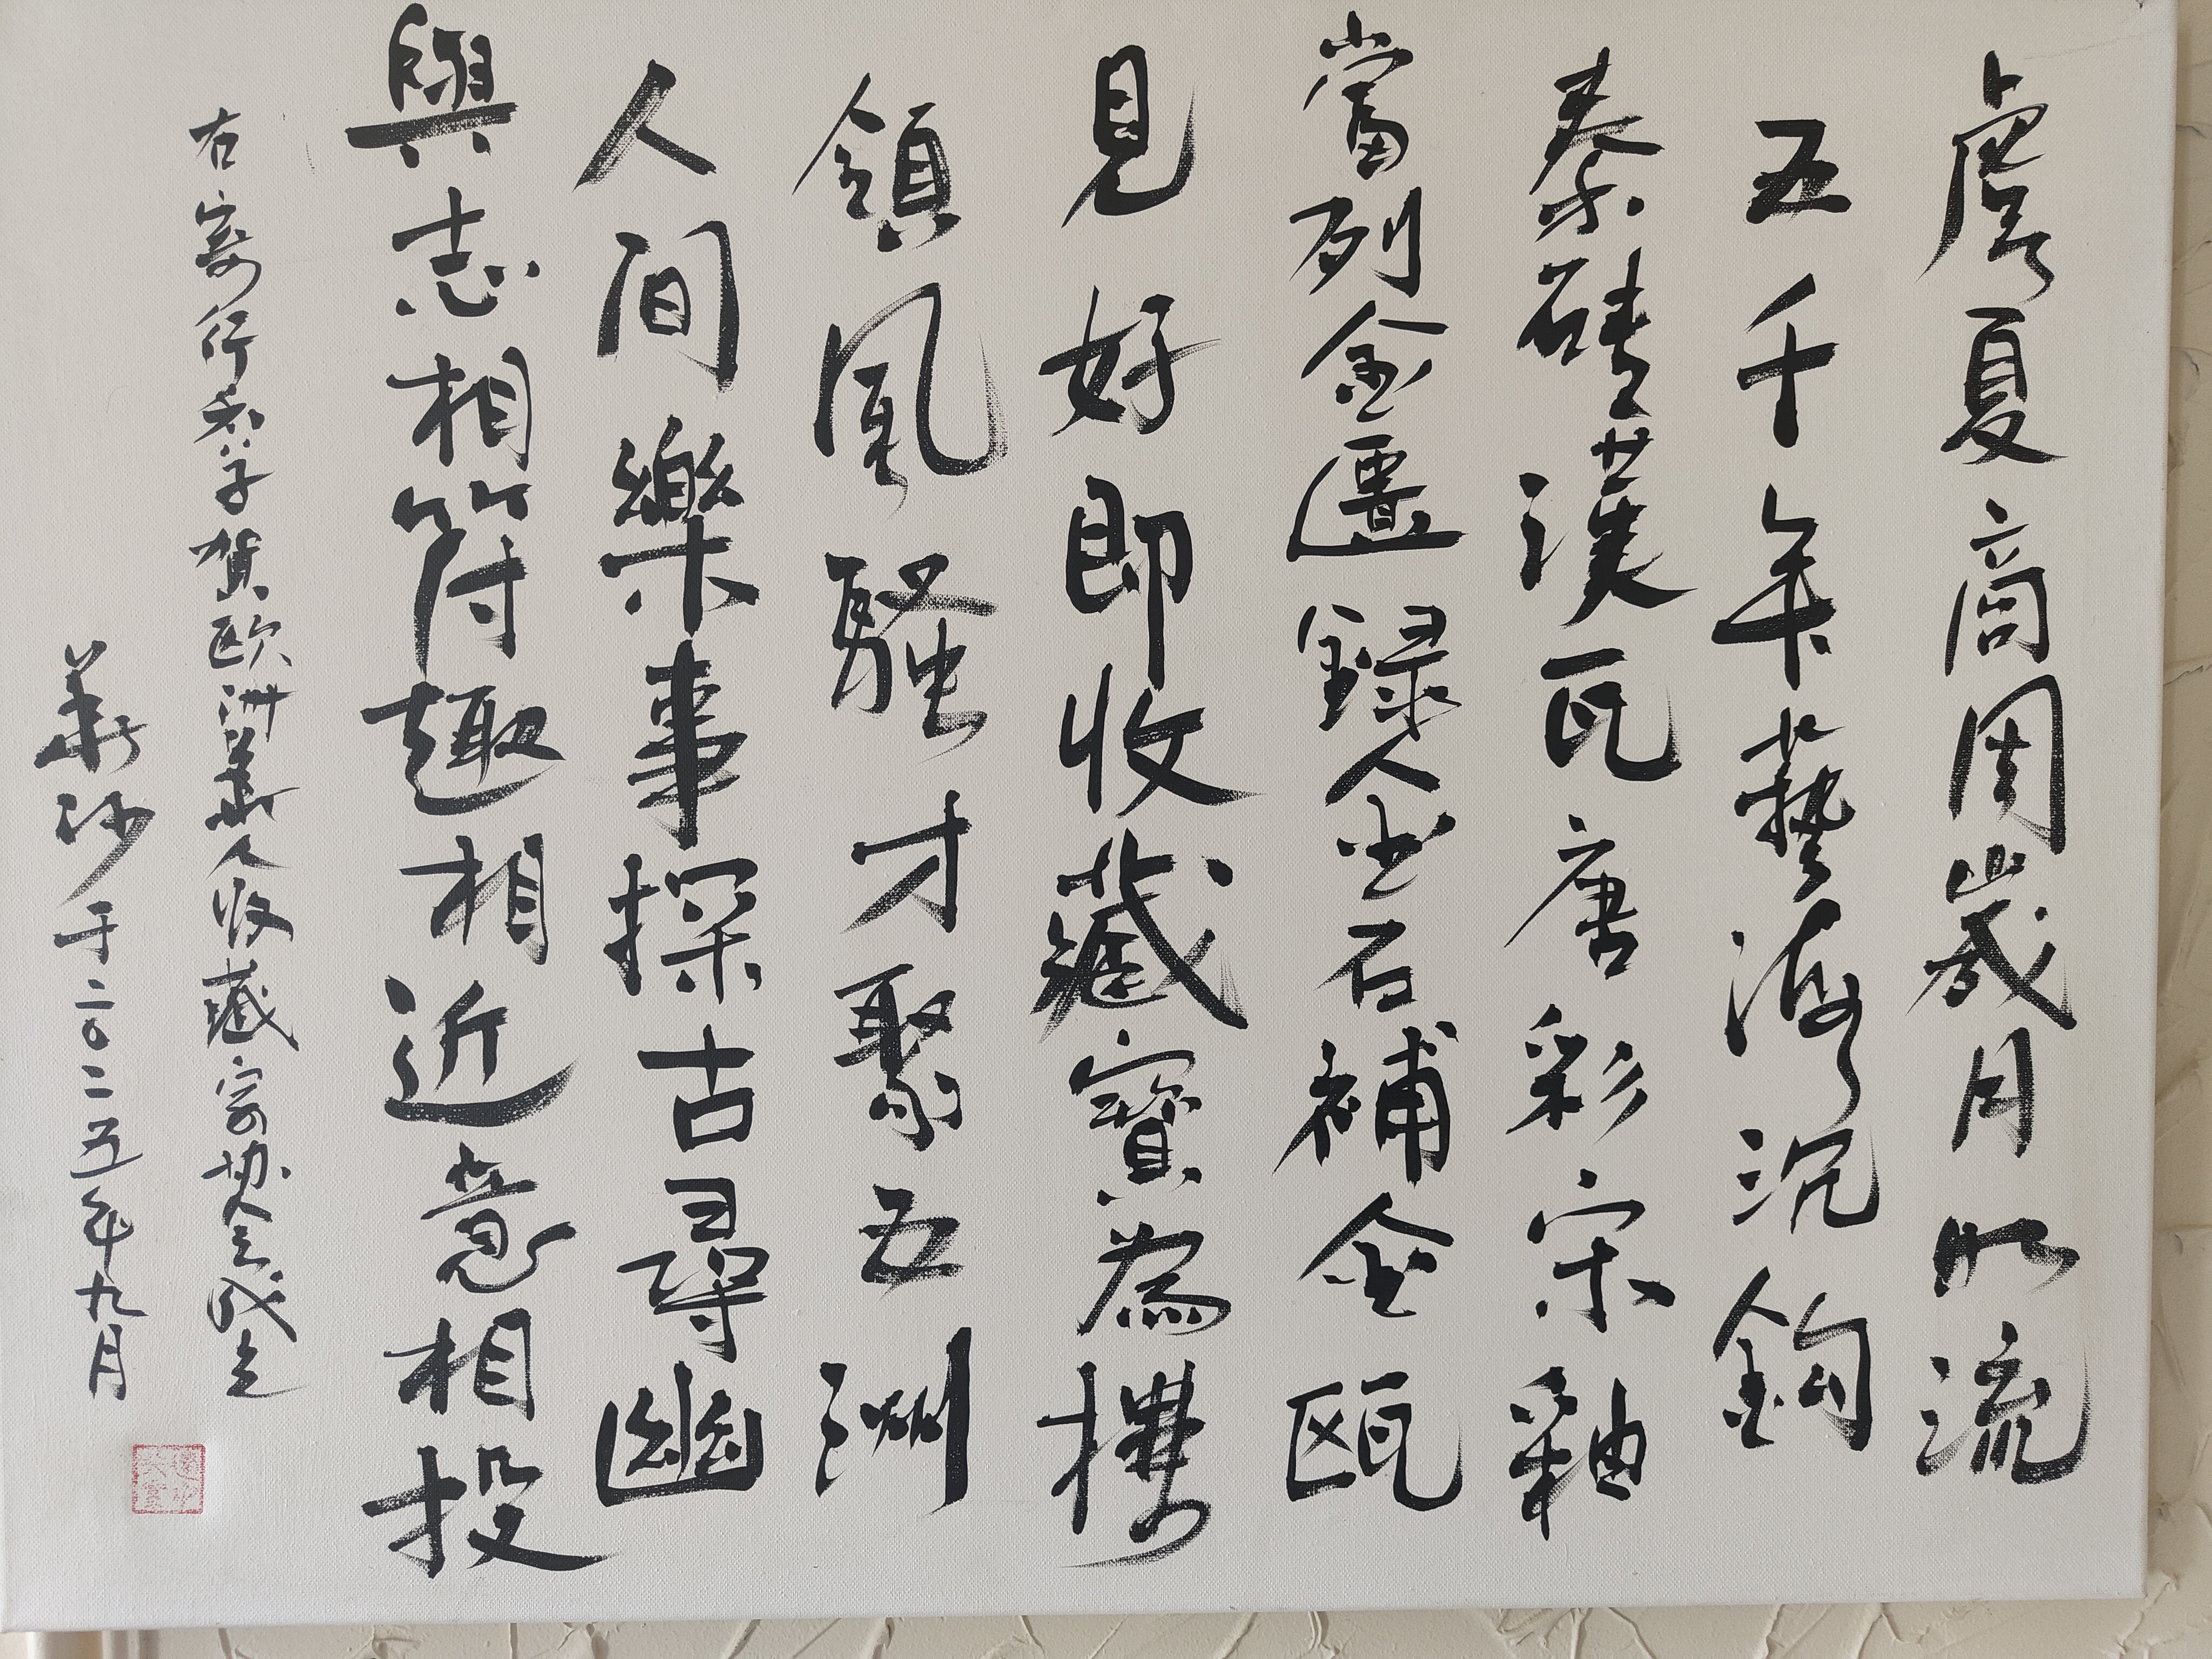 虞夏商周歲月如流
五千年藝海沉鈎
秦磚漢瓦唐彩宋釉
當列金匱録金石補金甌
見好即收藏寶為摟
領風騷才聚五洲
人間樂事探古尋幽
與志相符趣相近意相投
右寄行香子賀歐洲華人收藏家協會成立
華沙于二〇二五年九月